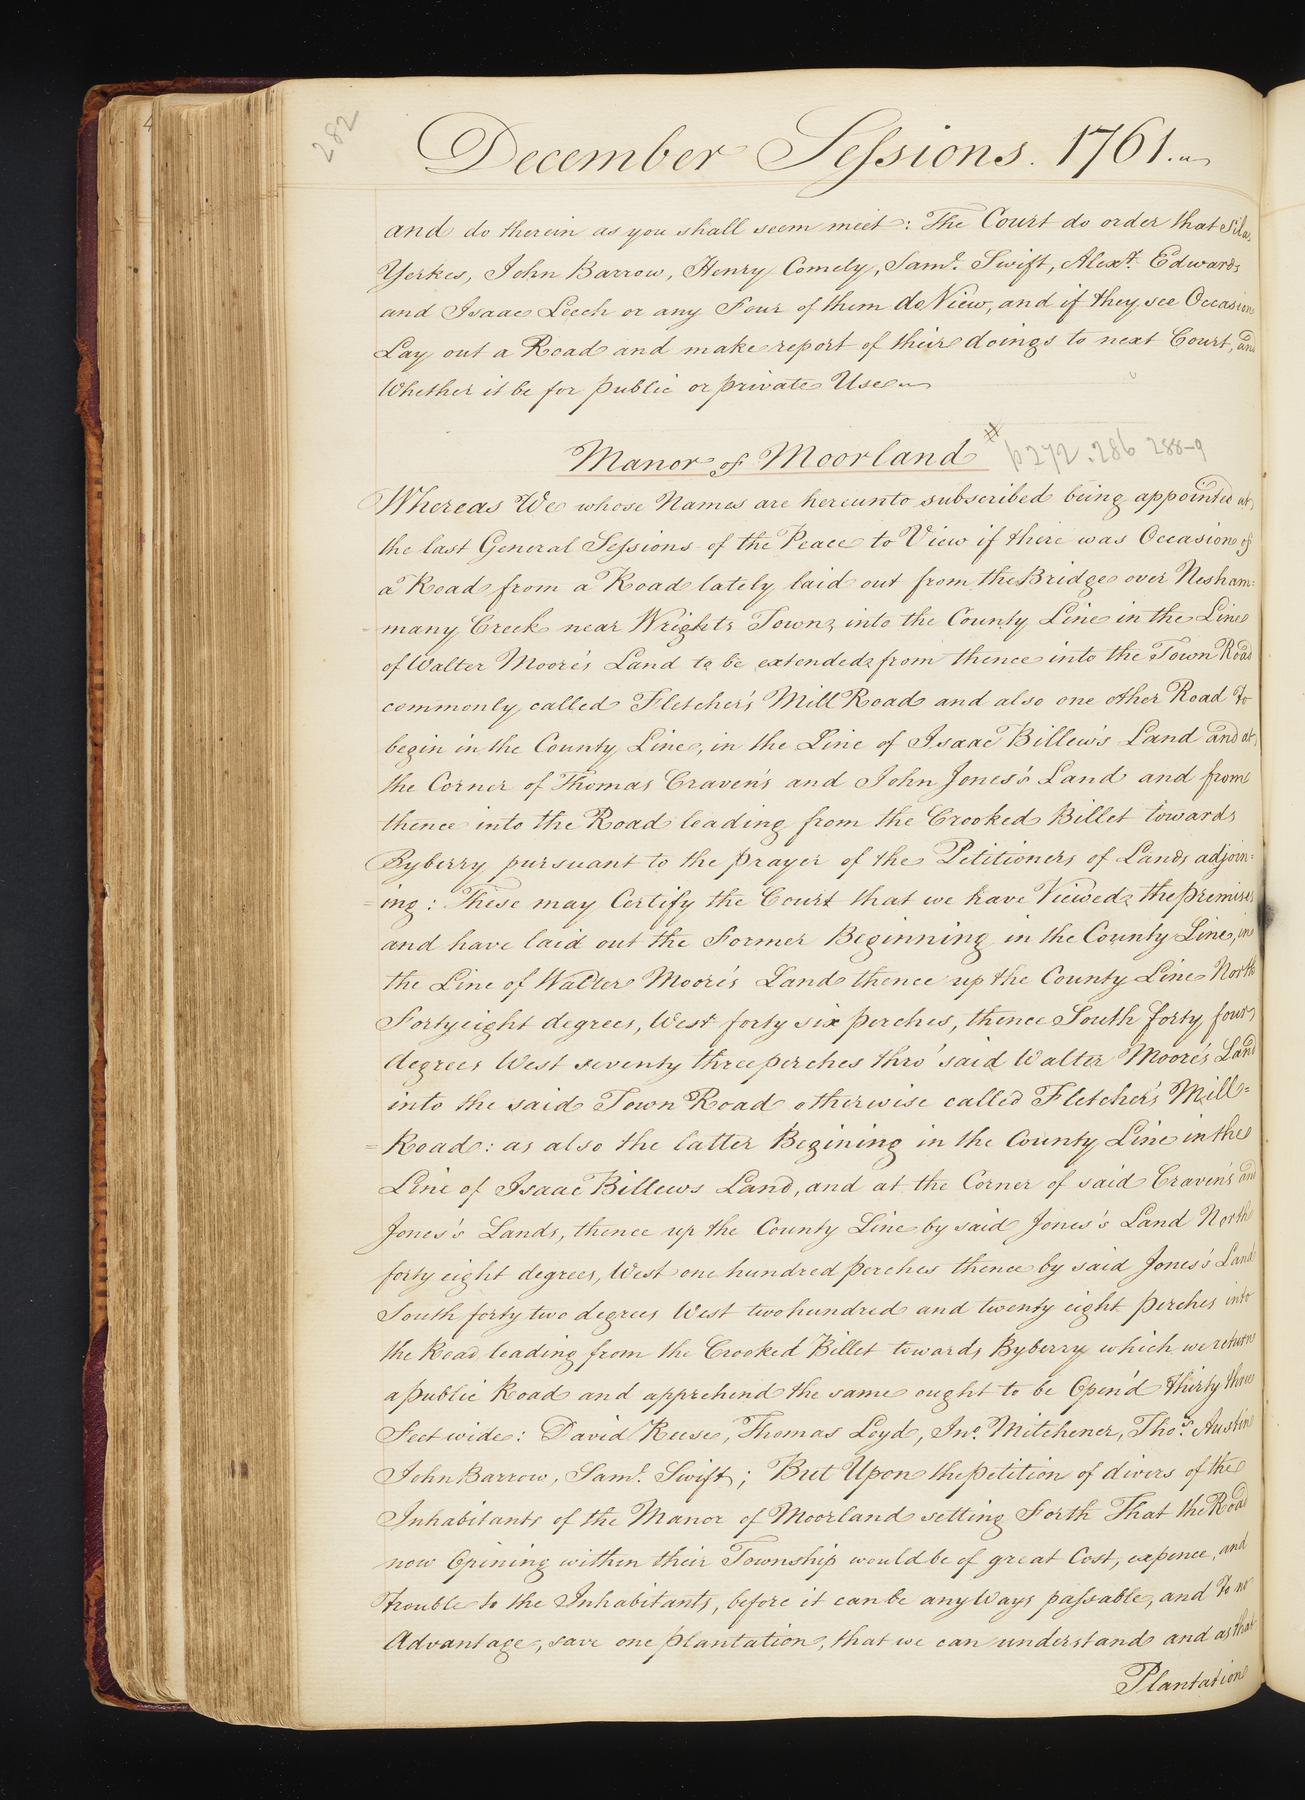 282
December Sessions. 1761.
and do therein as you shall seem meet: The Court do order that Silas
Yerkes, John Barrow, Henry Comely, Saml. Swift, Alexr. Edwards
and Isaac Leech or any Four of them do View, and if they see Occasion
Lay out a Road and make report of their doings to next Court, and
Whether it be for public or private Use
Manor of Moorland # p 272. 286 288-9
Whereas We whose Names are hereunto subscribed being appointed at
the last General Sessions of the Peace to View if there was Occasion of
a Road from a Road lately laid out from the Bridge over Nesham=
many Creek near Wrights Town, into the County Line in the Line
of Walter Moore's Land to be extended from thence into the Town Road
commonly called Fletcher's Mill Road and also one other Road to
begin in the County Line, in the Line of Isaac Billew's Land and at
the Corner of Thomas Craven's and John Jones's Land and from
thence into the Road leading from the Crooked Billet towards
Byberry pursuant to the prayer of the Petitioners of Lands adjoin=
=ing: These may Certify the Court that we have Viewed the premises
and have laid out the Former Beginning in the County Line, in
the Line of Walter Moore's Land thence up the County Line North
Forty eight degrees, West forty six perches, thence South forty four
degrees West seventy three perches thro' said Walter Moore's Land
into the said Town Road otherwise called Fletcher's Mill=
=Road: as also the latter Begining in the County Line in the
Line of Isaac Billews Land, and at the Corner of said Craven's and
Jones's Lands, thence up the County Line by said Jones's Land North
forty eight degrees, West one hundred perches thence by said Jones's Land
South forty two degrees West two hundred and twenty eight perches into
the Road leading from the Crooked Billet towards Byberry which we return
a public Road and apprehend the same ought to be Open'd thirty three
Feet wide: David Reese, Thomas Loyd, Jno. Mitchener, Thos. Austin
John Barrow, Saml. Swift; But Upon the petition of divers of the
Inhabitants of the Manor of Moorland setting Forth That the Road
now Opining within their Township would be of great Cost, expence, and
trouble to the Inhabitants, before it can be any Ways passable, and to no
Advantage, save one plantation, that we can understand and as that
Plantation